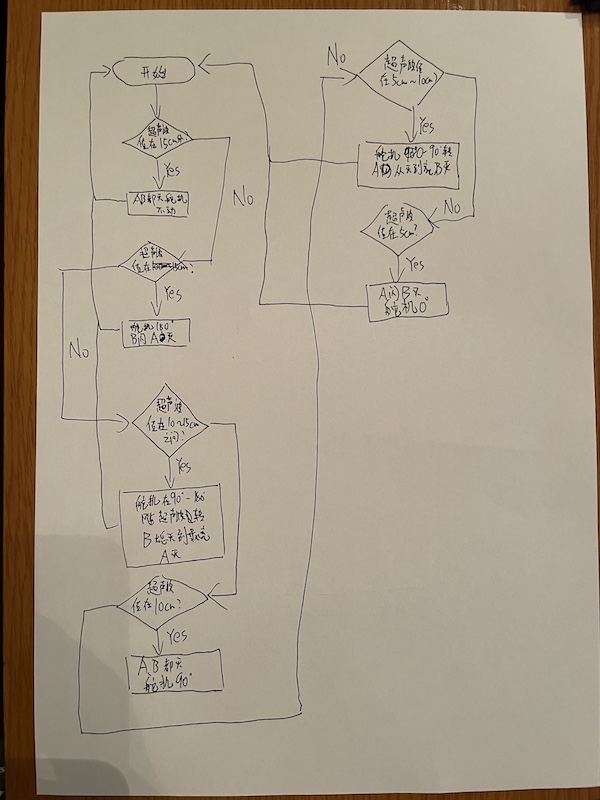 开始
超声波
值在15cm外?
Yes
No
AB都灭舵机
不动
超声波
值在15cm?
Yes
No
舵机180°
B闪A灭
超声波
值在10~15cm
之间?
Yes
舵机在90°-180°
随超声波值转
B从灭到最亮
A灭
超声波
值在10cm?
Yes
AB都灭
舵机90°
No
超声波值
在5cm~10cm?
Yes
舵机0°-90°转
A从灭到亮B灭
No
超声波
值在5cm?
Yes
A闪B灭
舵机0°